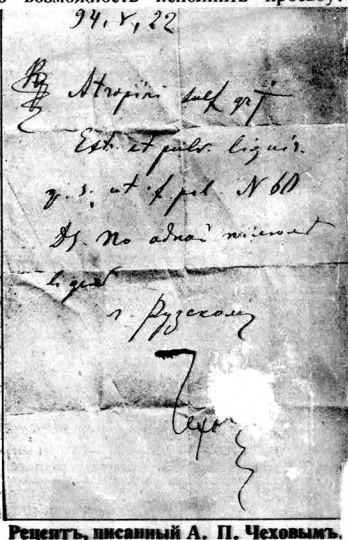 возможность исполнить просьбу.
94.V,22
Rp Atropini sulf gr j
Ext. et pulv. liquir.
q. s. ut f pil N 60
DS. По одной пилюле
в день
г. Рузскому
Чехов
Рецептъ, писанный А. П. Чеховымъ.